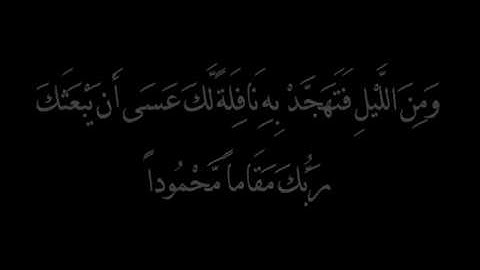 وَمِنَ اللَّيْلِ فَتَهَجَّدْ بِهِ نَافِلَةً لَّكَ عَسَى أَن يَبْعَثَكَ
رَبُّكَ مَقَاماً مَّحْمُوداً